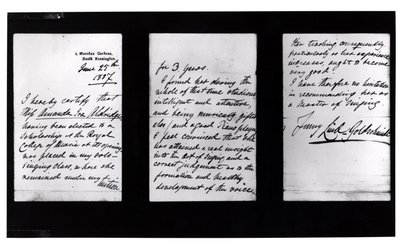 1, Moreton Gardens,
South Kensington.
June 25th
1887.
I hereby certify that
Miss Amanda Ira Aldridge
having been elected to a
Scholarship at the Royal
College of Music at its opening
was placed in my Solo-
Singing Class, where she
remained under my
tuition
for 3 Years.
I found her during the
whole of that time studious
intelligent and attentive,
and being musically gifted
also and a good Piano player,
I feel convinced that she
has attained a real insight
into the Art of Singing and a
correct judgement as to the
formation and healthy
development of the voice.
Her teaching consequently
particularly as her experience
increases ought to become
very good.
I have therefore no hesitation
in recommending her as
a Master of Singing.
Jenny Lind Goldschmidt